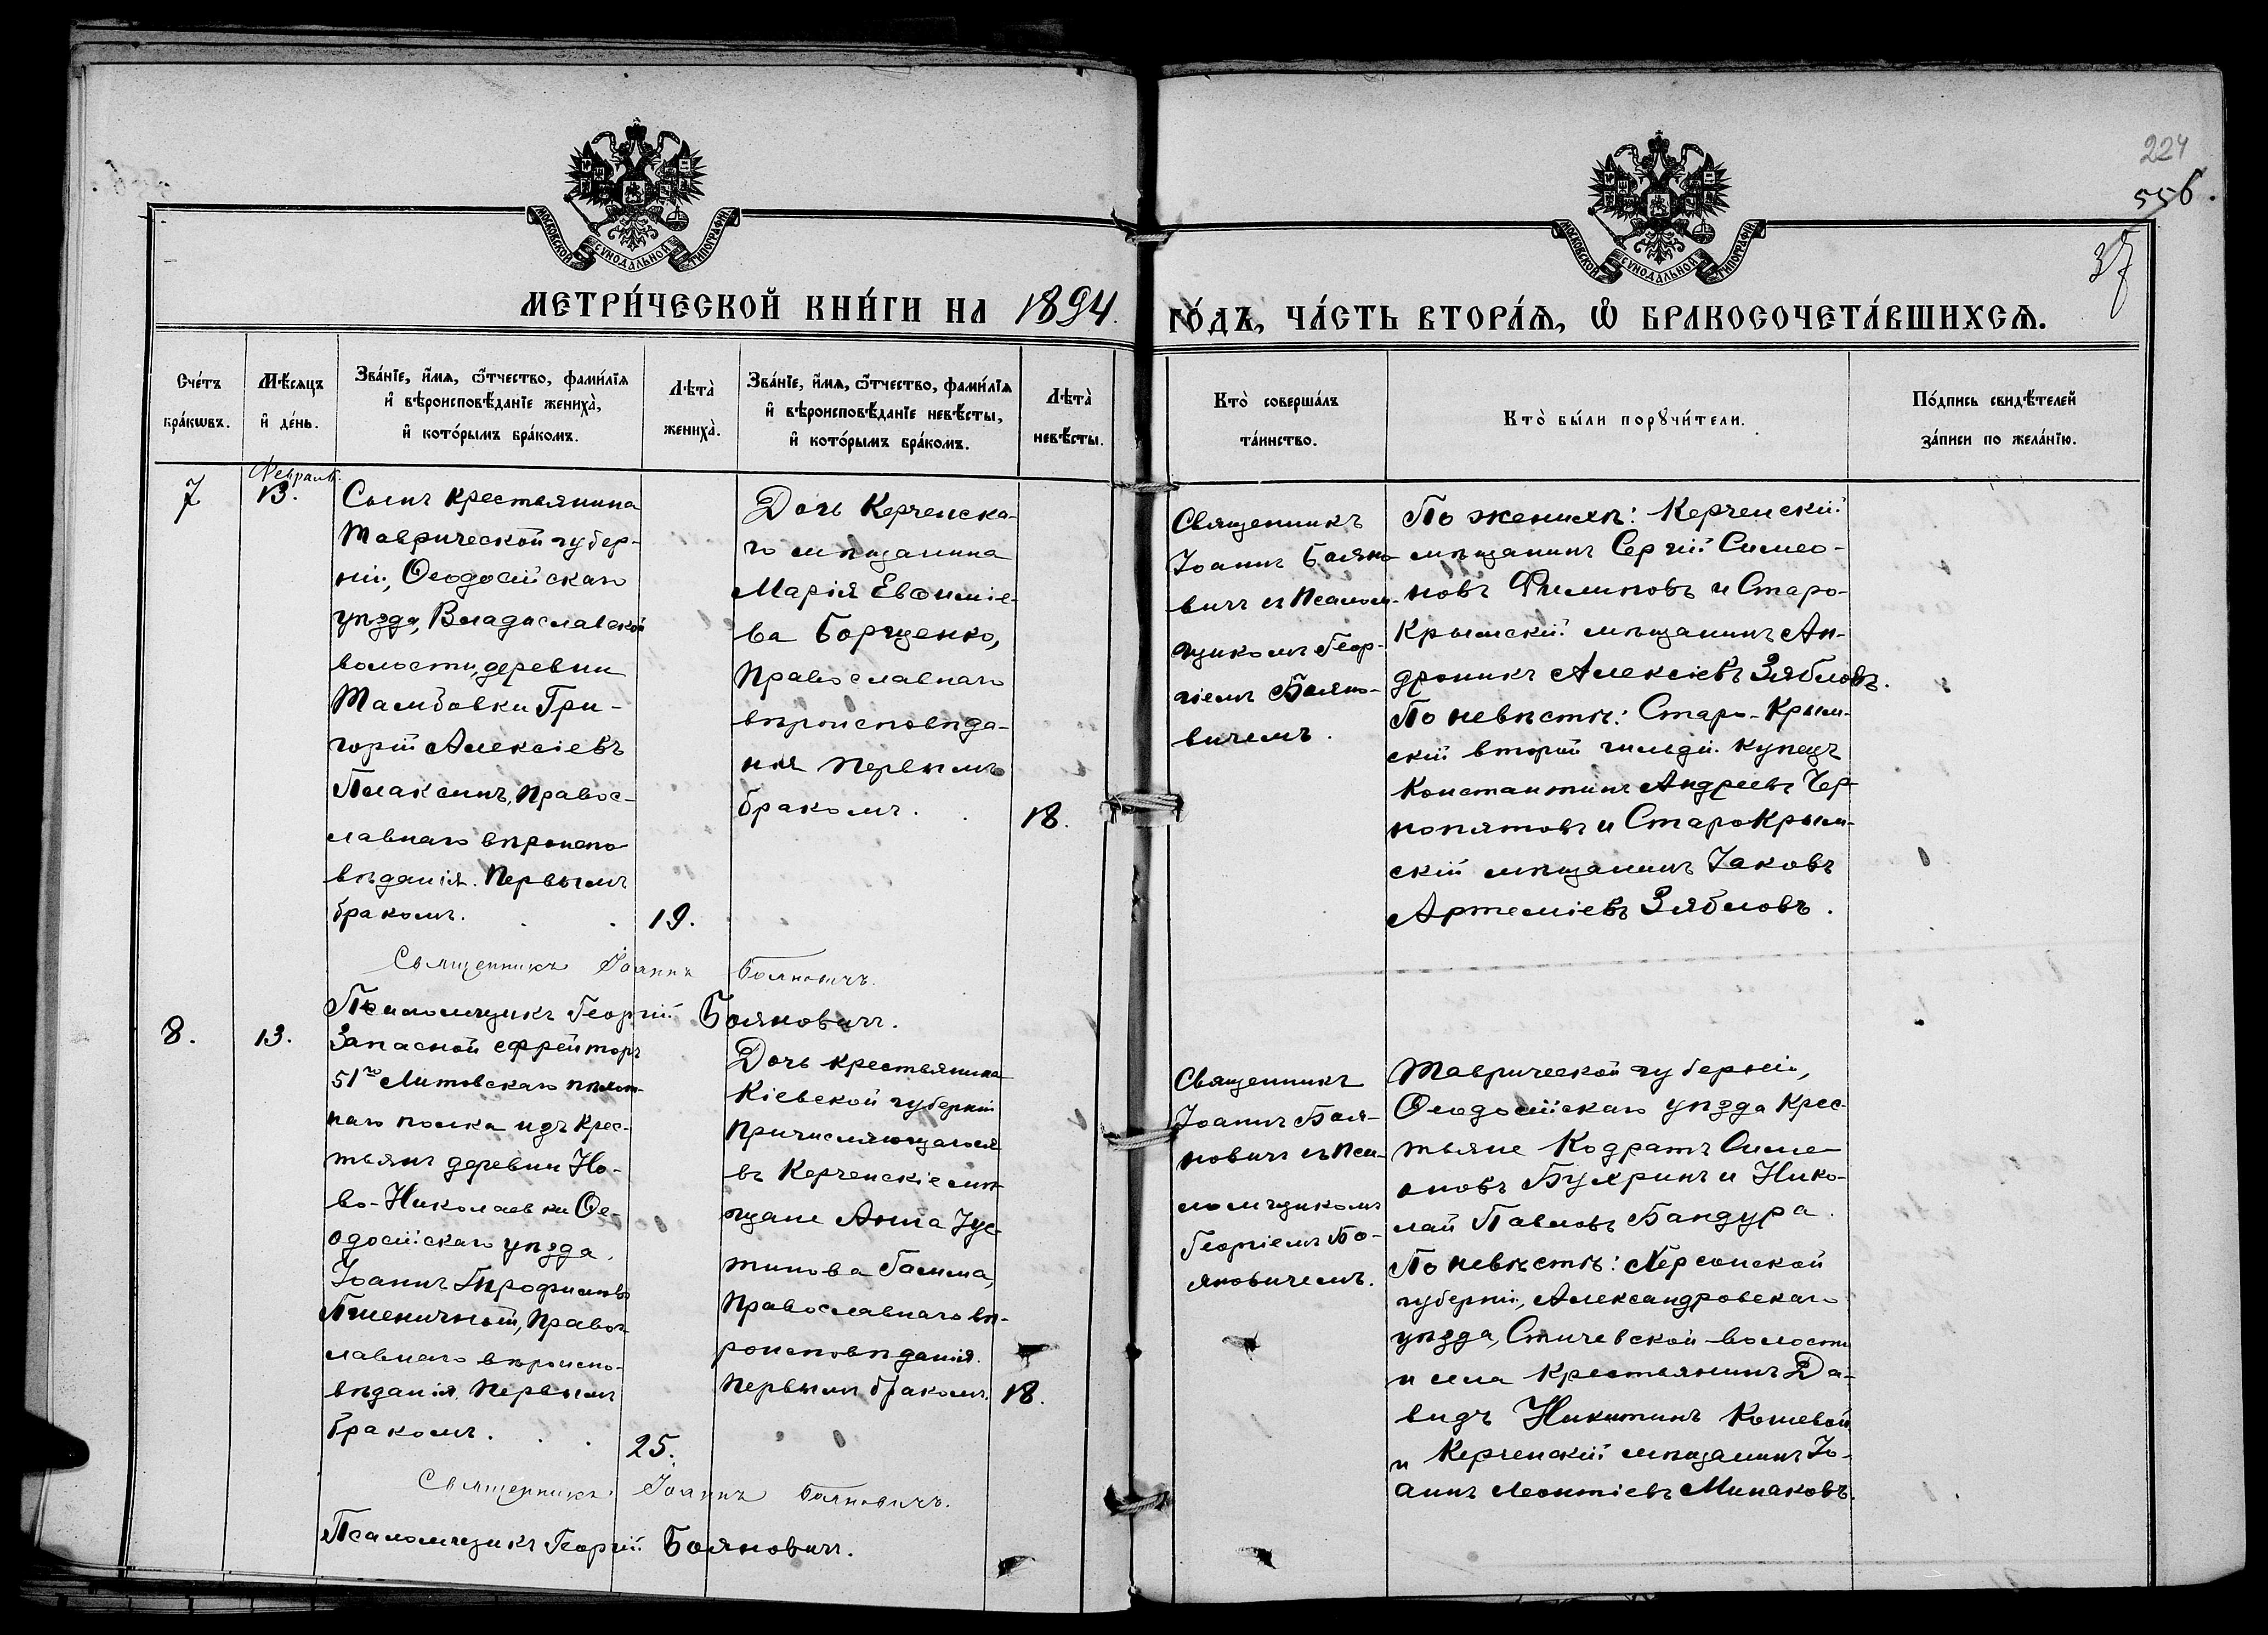 224
556.
37
МОСКОВСКОЙ СѴНОДАЛЬНОЙ ТИПОГРАФІИ
МОСКОВСКОЙ СѴНОДАЛЬНОЙ ТИПОГРАФІИ
МЕТРИ́ЧЕСКОЙ КНИ́ГИ НА 1894. ГО́ДЪ, ЧА́СТЬ ВТОРА́Ѧ, Ѽ БРАКОСОЧЕТА́ВШИХСѦ.
Сче́тъ
бра́кѡвъ.
Мѣ́сяцъ
и҆ де́нь.
Зва́нїе, и҆́мѧ, ѻ҆́тчество, фами́лїѧ
и҆ вѣроисповѣ́данїе жениха̀,
и҆ кото́рымъ бра́комъ.
Лѣта̀
жениха̀.
Зва́нїе, и҆́мѧ, ѻ҆́тчество, фами́лїѧ
и҆ вѣроисповѣ́данїе невѣ́сты,
и҆ кото́рымъ бра́комъ.
Лѣта̀
невѣ́сты.
Кто̀ соверша́лъ
та́инство.
Кто̀ бы́ли порꙋчи́тели.
По́дпись свидѣ́телей
за́писи по жела́нїю.
7
Февраль.
13.
Сынъ крестьянина
Таврической губер-
ніи, Ѳеодосійскаго
уѣзда, Владиславской
волости, деревни
Тамбовки Гри-
горій Алексіевъ
Плаксинъ, Правос-
лавнаго вѣроиспо
вѣданія. Первымъ
бракомъ.
19.
Дочь Керченска-
го мѣщанина
Марія Евѳиміе-
ва Борщенко,
Православнаго
вѣроисповѣда-
нія Первымъ
бракомъ.
18.
Священникъ
Іоаннъ Бояно
вичъ съ Псалом-
щикомъ Геор-
гіемъ Бояно-
вичемъ.
По женихѣ: Керченскій
мѣщанинъ Сергій Симео-
новъ Филиповъ и Старо-
Крымскій мѣщанинъ Ан-
дроникъ Алексіевъ Зябловъ.
По невѣстѣ: Старо-Крым-
скій второй гильдіи купецъ
Константинъ Андреевъ Чер-
нопятовъ и СтароКрым-
скій мѣщанинъ Іаковъ
Артеміевъ Зябловъ.
Священникъ Іоаннъ Бояновичъ.
Псаломщикъ Георгій Бояновичъ.
8.
13.
Запасной ефрейторъ
51го Литовскаго пѣхот-
наго полка изъ крес-
тьянъ деревни Но-
во-Николаевки Ѳе-
одосійскаго уѣзда,
Іоаннъ Трофимовъ
Пшеничный, Правос-
лавнаго вѣроиспо-
вѣданія, Первымъ
бракомъ.
25.
Дочь крестьянина
Кіевской губерніи
Причисляющагося
въ Керченскіе мѣ-
щане Анна Іус-
тинова
Православнаго вѣ-
роисповѣданія.
Первымъ бракомъ.
18.
Священникъ
Іоаннъ Боя-
новичъ съ Пса-
ломщикомъ
Георгіемъ Бо-
яновичемъ.
Таврической губерніи,
Ѳеодосійскаго уѣзда крес-
тьяне Кодратъ Симе
оновъ Бухринъ и Нико-
лай Павловъ Бандура.
По невѣстѣ: Херсонской
губерніи, Александровскаго
уѣзда, волости
и села крестьянинъ Да-
видъ Никитинъ Кошевой
и Керченскій мѣщанинъ Іо-
аннъ Леонтіевъ Минаковъ.
Священникъ Іоаннъ Бояновичъ.
Псаломщикъ Георгій Бояновичъ.